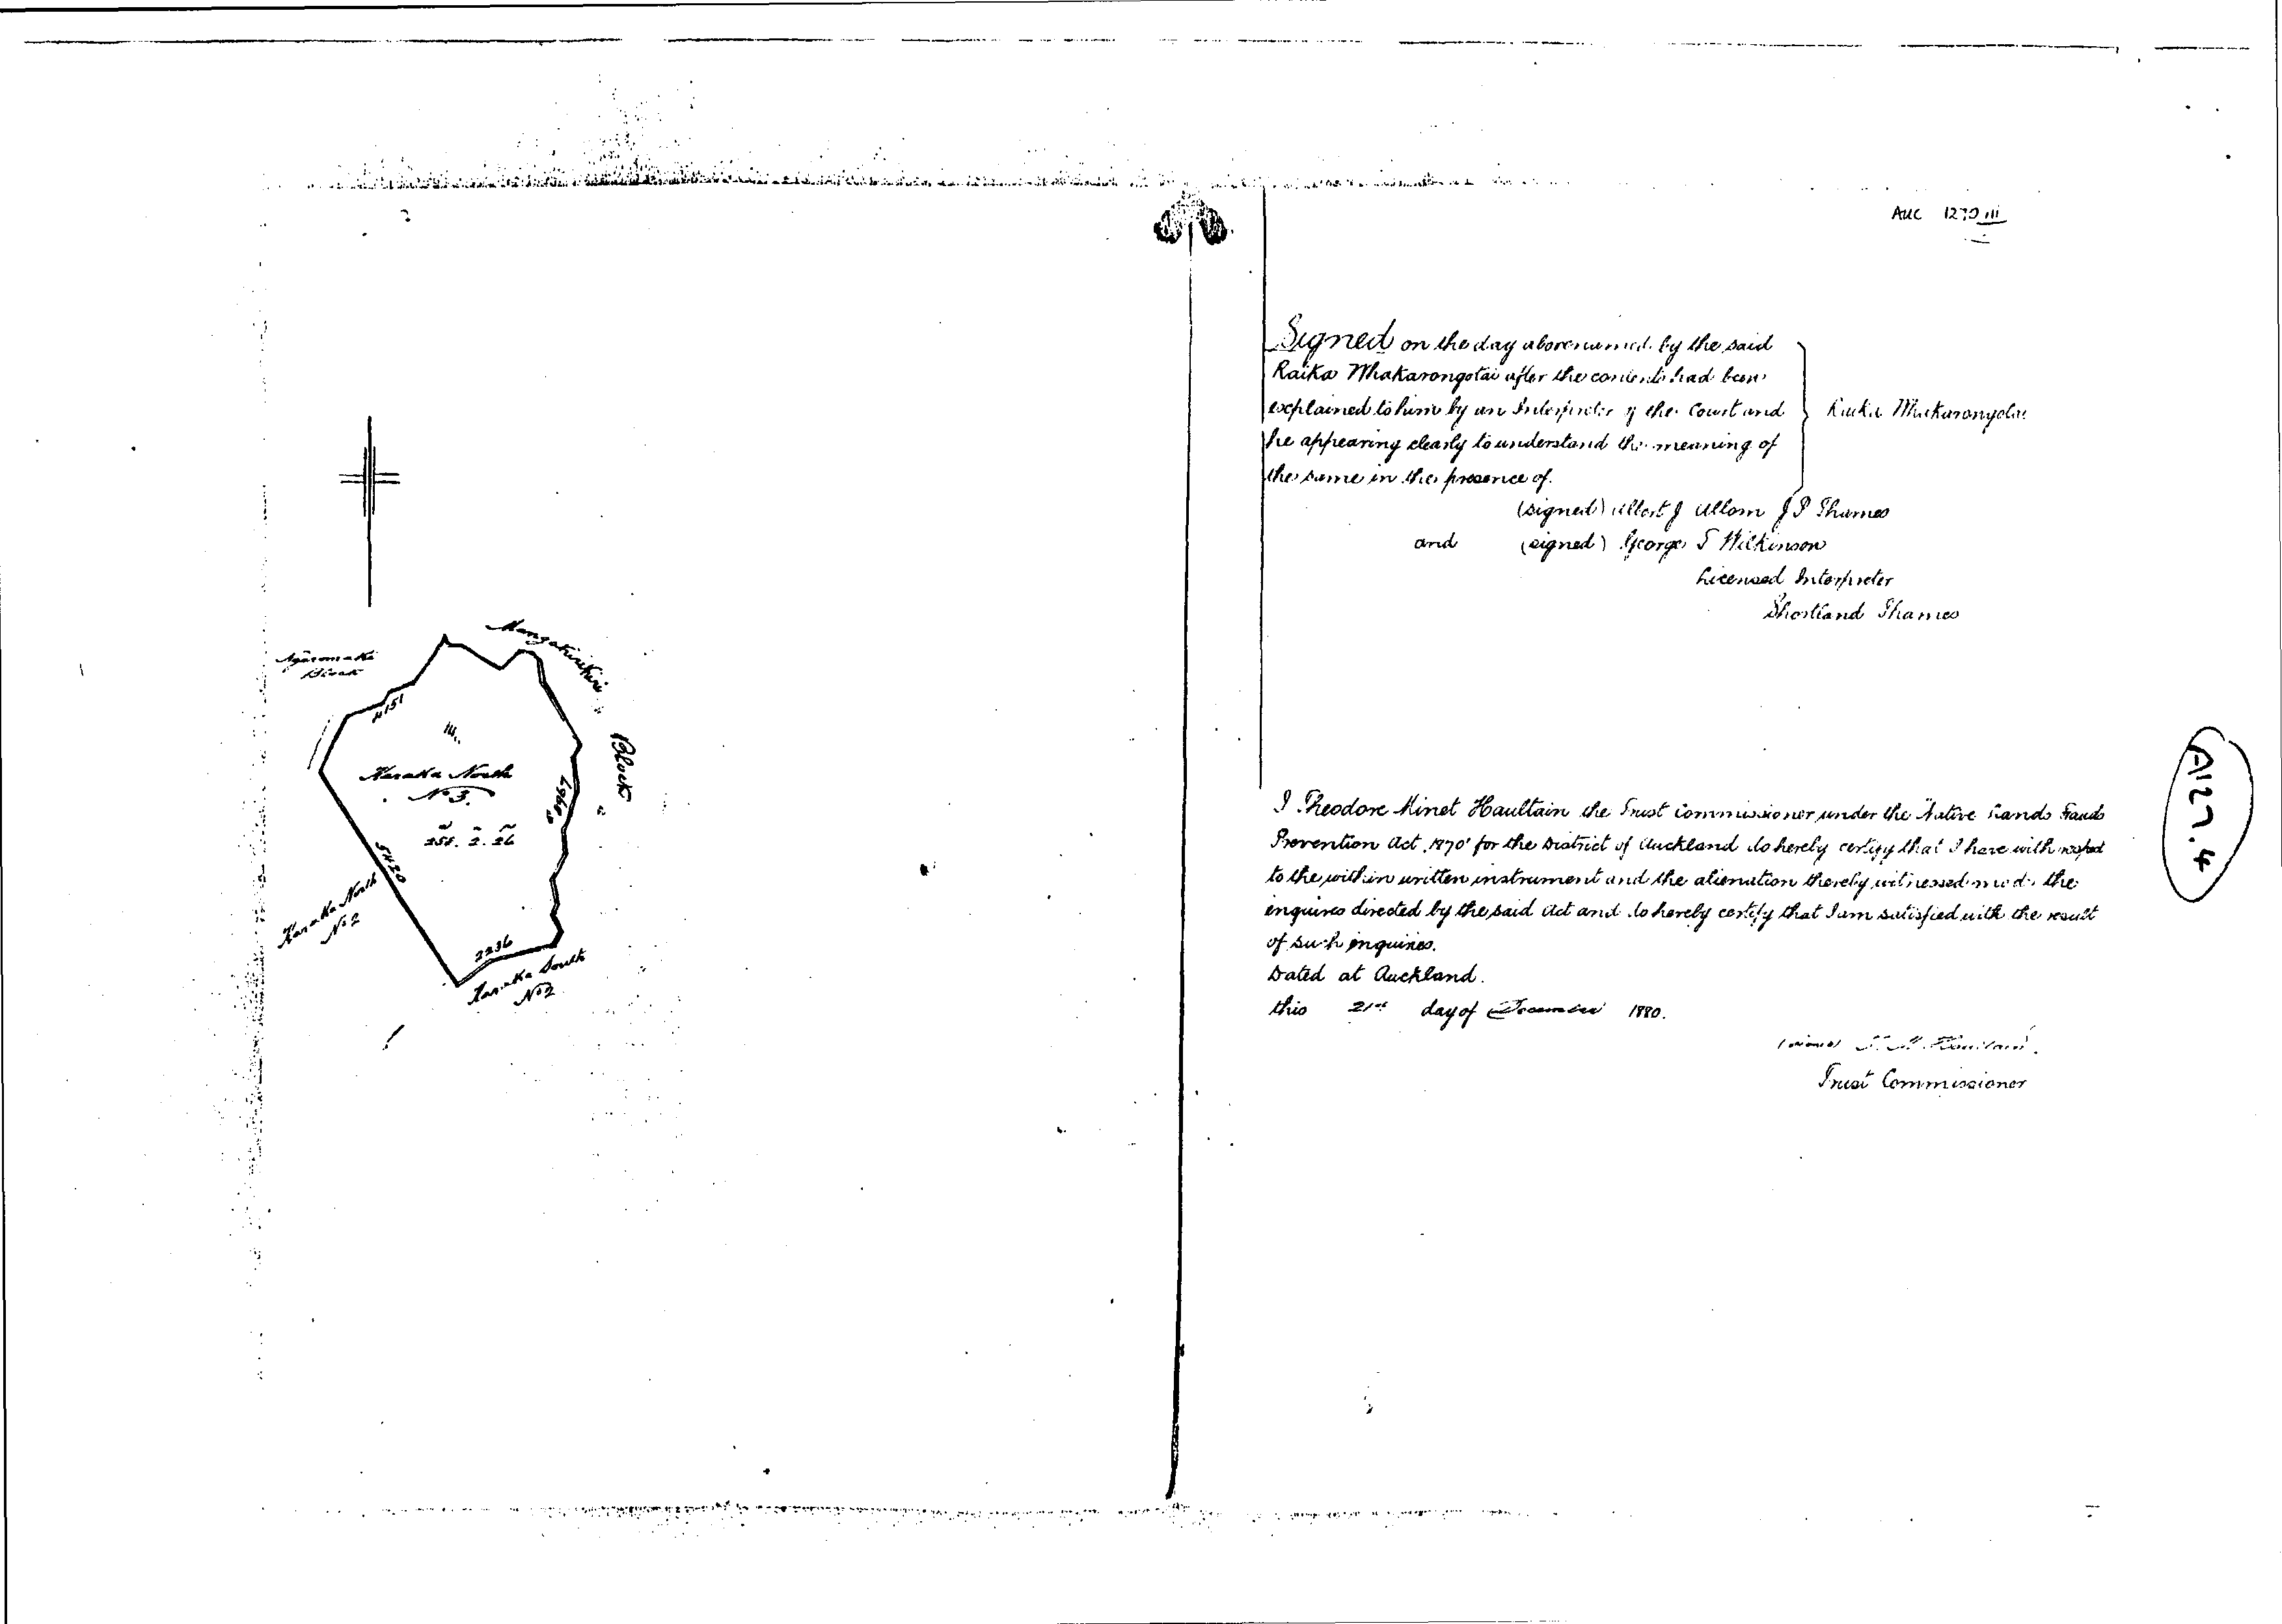 AUC 1270 III
Signed on the day abovenamed by the said
Raika Whakarongotai after the contents had been
explained to him by an Interpreter of the Court and
he appearing clearly to understand the meaning of
the same in the presence of.
Raika Whakarongotai
(signed) Albert J Allom J P Thames
and (signed) George T Wilkinson
Licensed Interpreter
Shortland Thames
I Theodore Minet Haultain the Trust Commissioner under the Native Lands Frauds
Prevention Act 1870 for the District of Auckland do hereby certify that I have with respect
to the within written instrument and the alienation thereby witnessed made the
enquires directed by the said Act and do hereby certify that I am satisfied with the result
of such enquires.
Dated at Auckland.
this 21st day of December 1880.
(signed) T. M. Haultain.
Trust Commissioner
A127.4
Mangakirikiri
Block
Block
4151
III.
Karaka North
No 3.
255. 2. 26
5420
2236
Karaka North
No 2
Karaka South
No 2